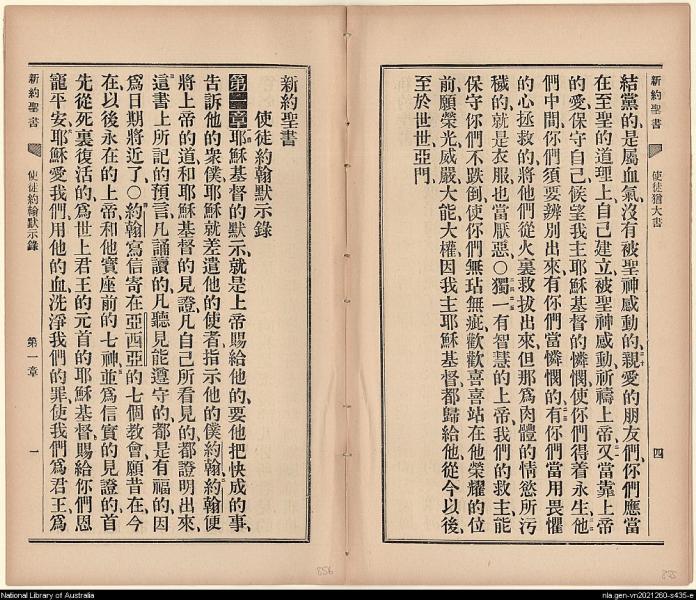 新約聖書
使徒猶大書
四
結黨的是屬血氣、沒有被聖神感動的、親愛的朋友們、你們應當
在至聖的道理上、自己建立、被聖神感動、祈禱上帝、又當靠上帝
的愛、保守自己、候望我主耶穌基督的憐憫、使你們得着永生、他
們中間、你們須要辨別出來、有你們當憐憫的、有你們當用畏懼
的心拯救的、將他們從火裏救拔出來、但那爲肉體的情慾所污
穢的、就是衣服也當厭惡○獨一有智慧的上帝、我們的救主、能
保守你們不跌倒、使你們無玷無疵、歡歡喜喜站在他榮耀的位
前、願榮光、威嚴、大能、大權、因我主耶穌基督都歸給他、從今以後、
至於世世、亞門、
新約聖書
使徒約翰默示錄
第一章耶穌基督的默示、就是上帝賜給他的、要他把快成的事、
告訴他的衆僕、耶穌就差遣他的使者、指示他的僕約翰、約翰便
將上帝的道、和耶穌基督的見證、凡自己所看見的、都證明出來、
這書上所記的預言、凡誦讀的、凡聽見能遵守的、都是有福的、因
爲日期將近了○約翰寫信寄在亞西亞的七個教會、願昔在、今
在、以後永在的上帝、和他寶座前的七神、並爲信實的見證的、首
先從死裏復活的、爲世上君王的元首的耶穌基督、賜給你們恩
寵平安、耶穌愛我們、用他的血洗淨我們的罪、使我們爲君王、爲
新約聖書
使徒約翰默示錄
第一章
一
National Library of Australia
nla.gen-vn2021260-s435-e